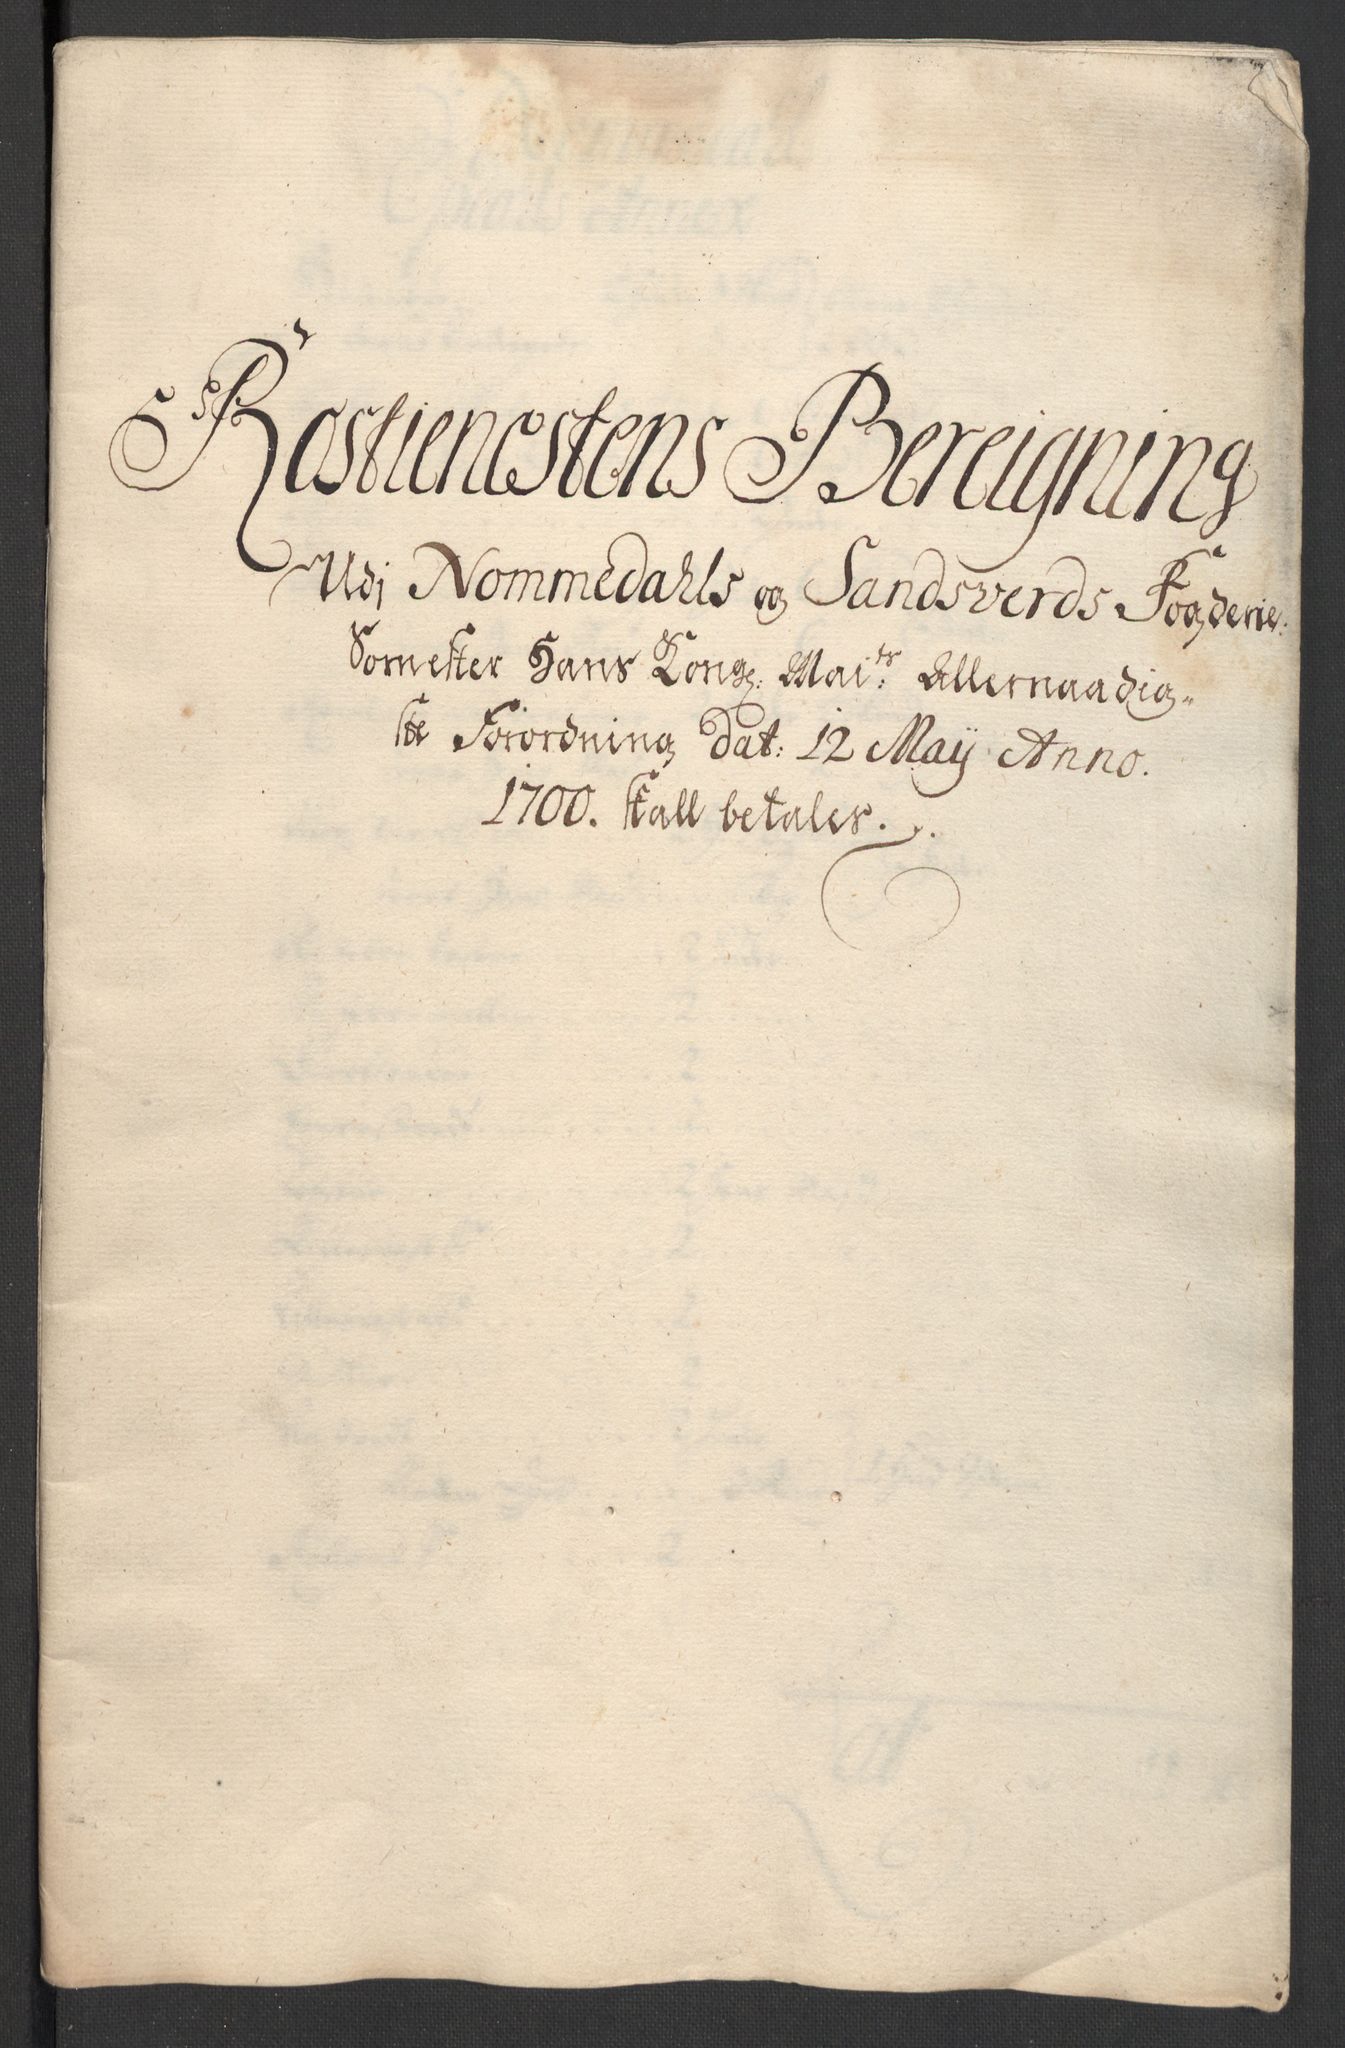 Rostienestens Bereigning
Udj Nommedahls og Sandsverds Fogderie:
Somefter Hans Kong: Maits: Allernaadig-
ste Forordning Dat: 12 Maij Anno.
1700. skall betales.